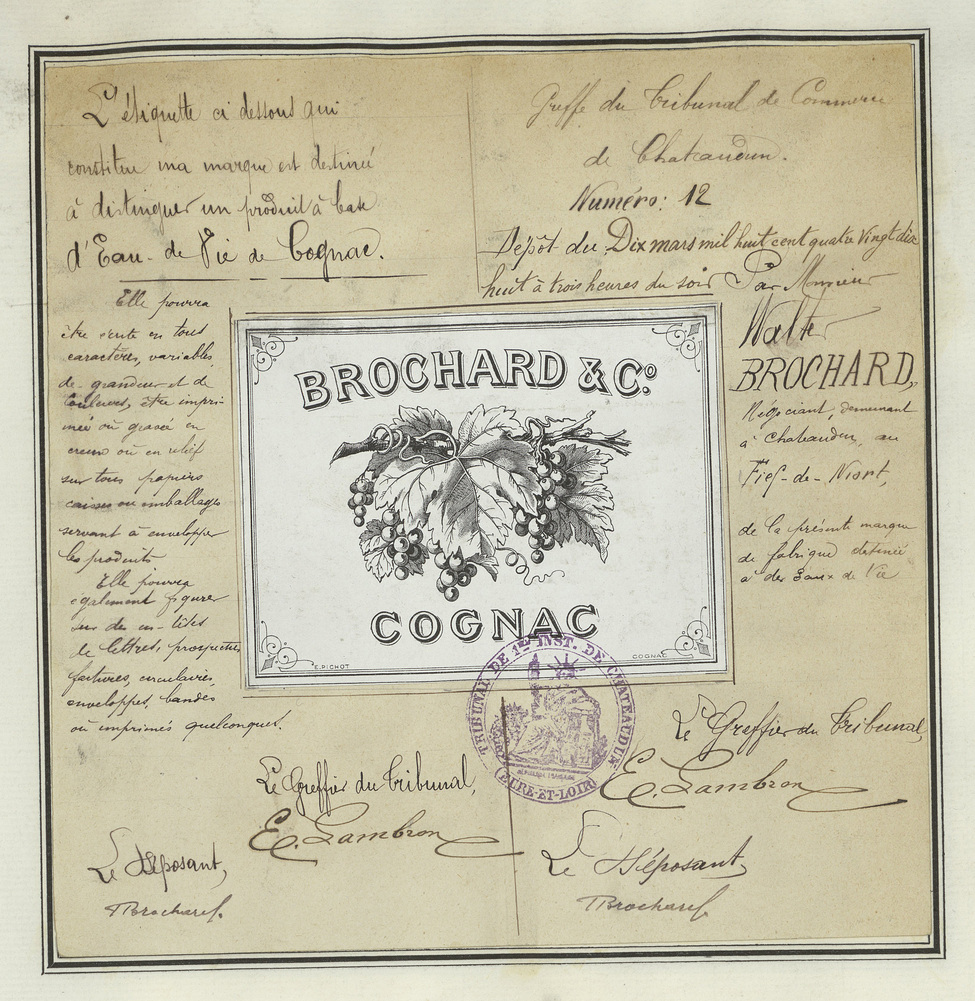 L'étiquette ci dessous qui
constitue ma marque est destinée
à distinguer un produit à base
d'Eau-de Vie de Cognac.
Elle pourra
être vente en tous
caractères, variables
de grandeur et de
couleurs, être impri-
mée ou gravée en
creux ou en relief
sur tous papiers
caisses ou emballages
servant à envelopper
les produits
Elle pourra
également figurer
sur des en-têtes
de lettres, prospectus,
factures, circulaires,
enveloppes, bandes
ou imprimés quelconques.
Le Greffier du Tribunal,
E. Lambron
Le Déposant,
Brochard
Greffe du Tribunal de Commerce
de Chateaudun.
Numéro: 12
Dépôt du Dix mars mil huit cent quatre vingt dix
huit à trois heures du soir Par Monsieur
Walter
BROCHARD,
Négociant, demeurant
à Chateaudun, au
Fief-de-Niort,
de la présente marque
de fabrique destinée
à des Eaux de Vie
BROCHARD & Co.
COGNAC
E. PICHOT
COGNAC
TRIBUNAL DE 1re INST. DE CHATEAUDUN
(EURE-ET-LOIR)
Le Greffier du Tribunal,
E. Lambron
Le Déposant,
Brochard